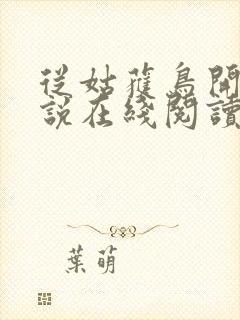 從姑蘿鳥開
說在綫閱讀
葉萌